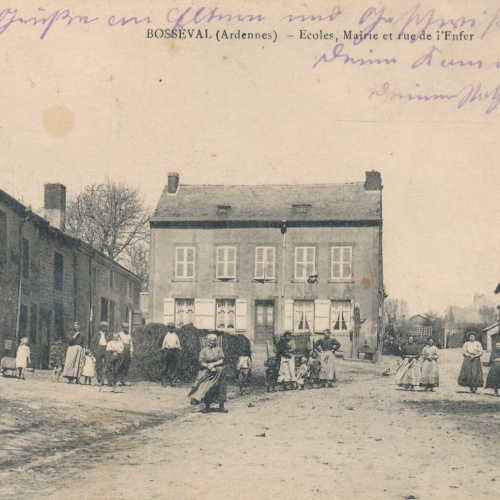 Grüße an Eltern und Geschwist
BOSSÉVAL (Ardennes) – Écoles, Mairie et rue de l'Enfer
Deine
Deinen